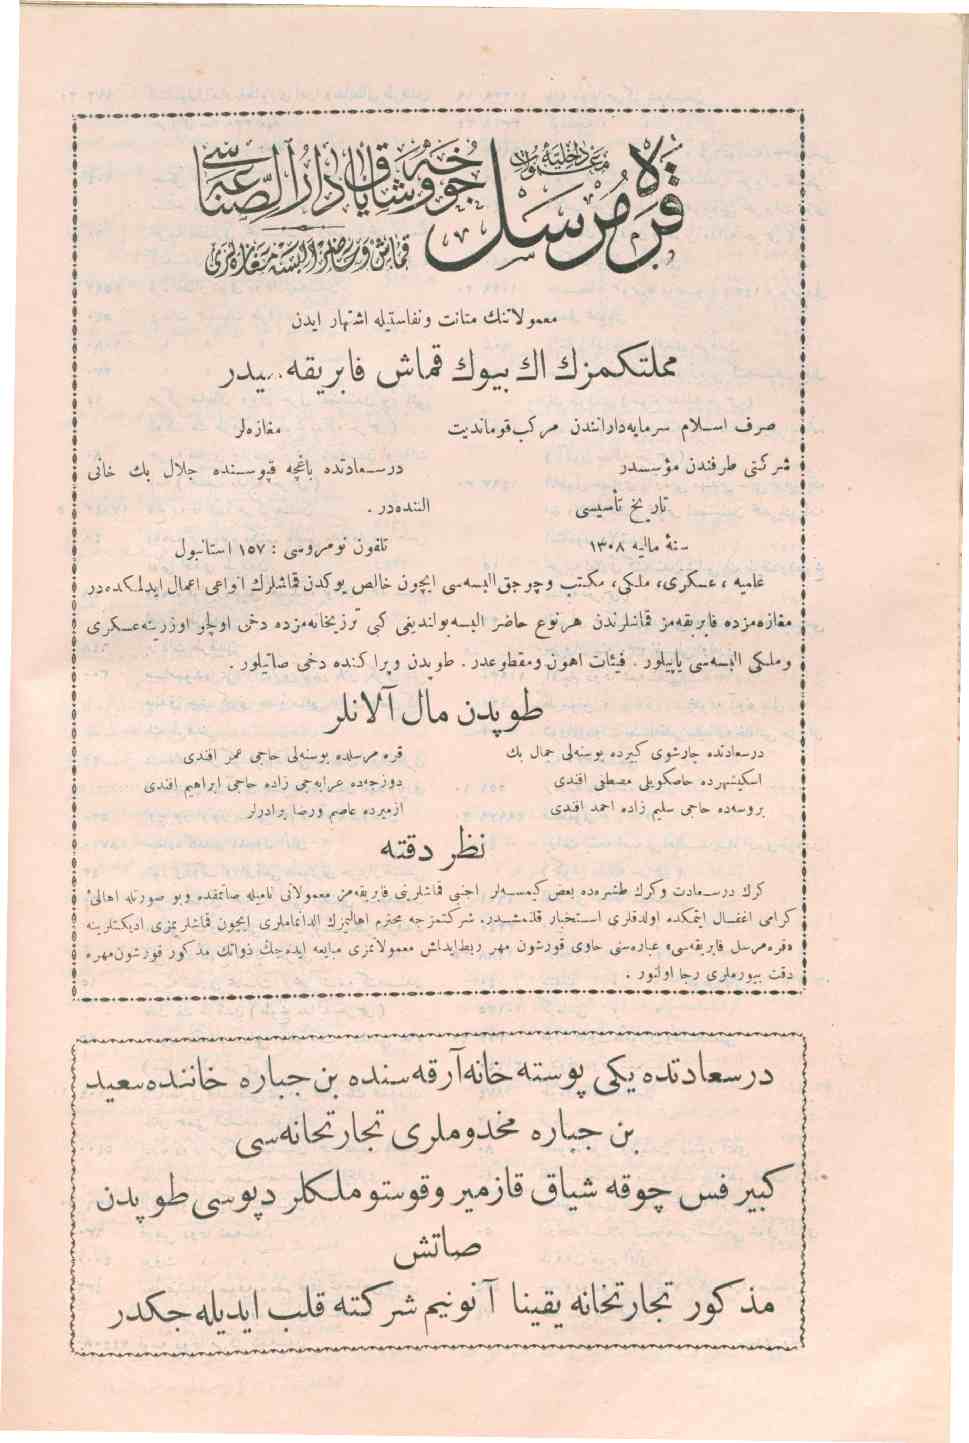 قره مرسل
چوخه وشاياق دار الصناعه سى
قماش وحاضر البسه مغازه لرى
معمولاتنك متانت ونفاستيله اشتهار ايدن
مملكتمزك اك بيوك قماش فابريقه سيدر
صرف اسلام سرمايه‌داراننندن مركب قومانديت
شركتى طرفندن مؤسسدر
تاريخ تأسيسى
سنهٔ ماليه ١٣٠٨
مغازه‌لر
درسعادتده باغچه قپوسنده جلال بك خانى
التنده‌در .
تلفون نومروسى : ١٥٧ استانبول
علميه ، عسكرى، ملكى، مكتب وچوجق البسه‌سى ايچون خالص يوكدن قماشلرك انواعى اعمال ايدلمكده‌در
مغازه‌مزده فابريقه‌مز قماشلرندن هرنوع حاضر البسه بولنديغى كبى ترزيخانه‌مزده دخى اولچو اوزرينه عسكرى
وملكى البسه‌سى ياپيلور . فيئات اهون ومقطوعدر . طوپدن وپراكنده دخى صاتيلور .
طوپدن مال آلانلر
درسعادتده چارشوى كبيرده بوسنه‌لى جمال بك
اسكيشهرده حاصكويلى مصطفى افندى
بروسه‌ده حاجى سليم زاده احمد افندى
قره مرسلده بوسنه‌لى حاجى عمر افندى
دوزجه‌ده عرابه‌جى زاده حاجى ابراهيم افندى
ازميرده عاصم ورضا برادرلر
نظر دقته
كرك درسعادت وكرك طشره‌ده بعض كيمسه‌لر اجنبى قماشلرينى فابريقه‌مز معمولاتى ناميله صاتمقده وبو صورتله اهالئ
كرامى اغفال ايتمكده اولدقلرى استخبار قلنمشدر. شركتمزجه محترم اهاليمزك الداتماملرى ايچون قماشلريمزى ايديكلرينه
«قره مرسل فابريقه‌سى» عباره‌سنى حاوى قورشون مهر ربط ايدلمش معمولاتمزى مبايعه ايده‌جك ذواتك مذكور قورشون مهره
دقت بيورملرى رجا اولنور .
درسعادتده يكى پوسته خانه آرقه سنده بن جباره خاننده سعيد
بن جباره مخدوملرى تجارتخانه‌سى
كبير فس چوقه شياق قازمير وقوستوملكلر دپوسى طوپدن
صاتش
مذكور تجارتخانه يقينا آنونيم شركته قلب ايديله جكدر